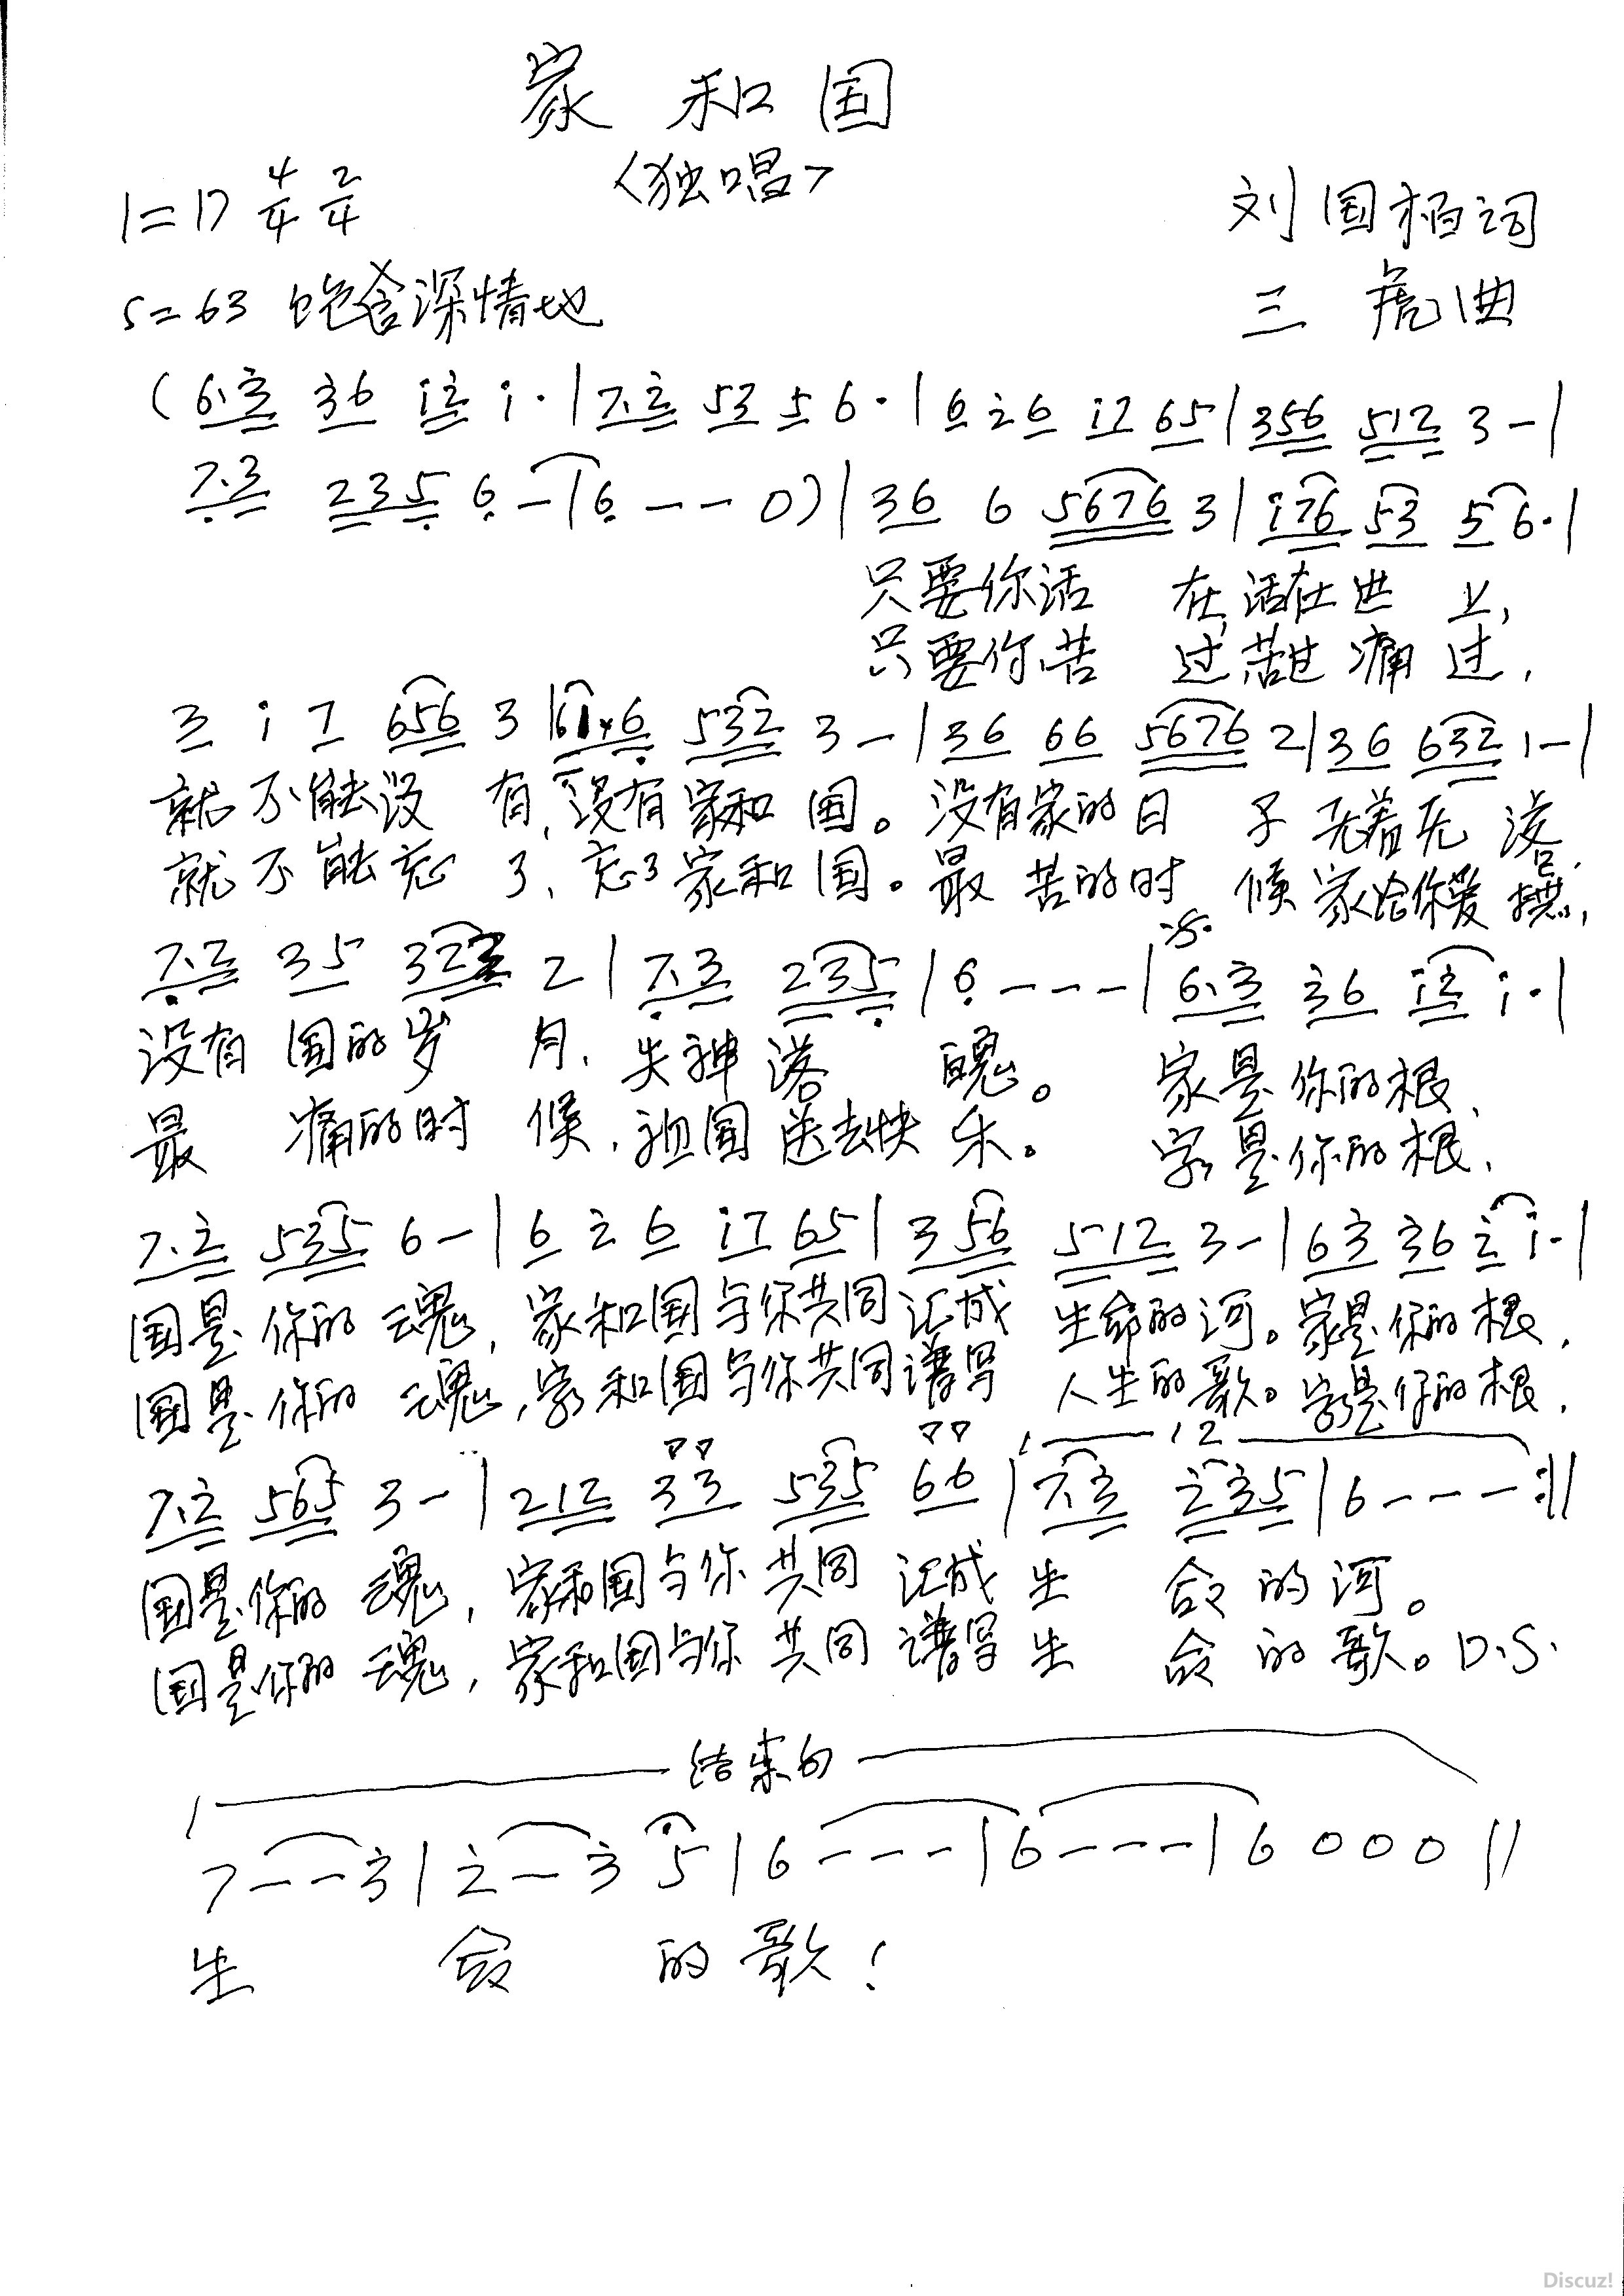 家和国
<独唱>
1=D 4/4 2/4
刘国柏词
5=63 饱含深情地
三虎曲
(6.3 36 i2 i·|7.2 53 5 6·|6 2 6 i7 65|356 512 3-|
7.3 235 6-|6---0)|36 6 5676 3|i76 53 5 6·|
只要你活 在,活在世 上,
只要你苦 过,苦过痛 过,
3 i 7 656 3|61 6 532 3-|36 66 5676 2|36 632 1-|
就不能没 有,没有家和 国。没有家的日 子无着无 落,
就不能忘 了,忘了家和国。最苦的时 候家给你爱
7.2 35 323 2|7.3 235|6---|6.3 36 i2 i·|
没有国的岁 月,失神落 魄。 家是你的根,
最 痛的时 候,祖国送去快 乐。 家是你的根,
7.2 535 6-|6 2 6 i7 65|3 56 512 3-|63 36 2 i·|
国是你的 魂,家和国与你共同汇成 生命的河。家是你的根,
国是你的 魂,家和国与你共同谱写 人生的歌。家是你的根,
12
7.2 565 3-|212 33 535 66|7.3 235|6---:||
国是你的 魂,家和国与你 共同 汇成 生 命 的 河。
国是你的 魂,家和国与你 共同 谱写 生 命 的 歌。D.S.
结束句
7--3|2-3 5|6---|6---|6 0 0 0||
生 命 的 歌!
Discuz!